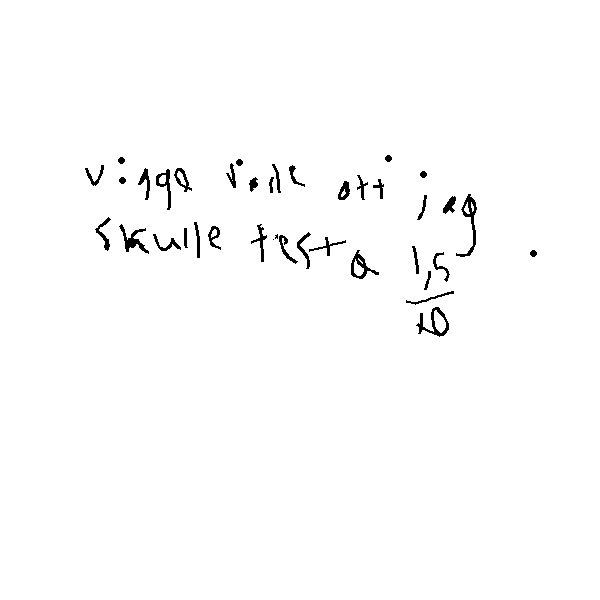 Vigga ville att jag
skulle testa 1,5
10